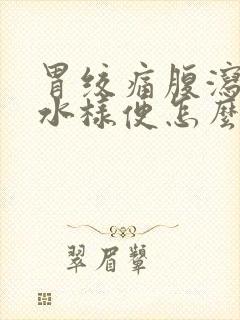 胃绞痛腹泻
水样便怎么
翠眉颦